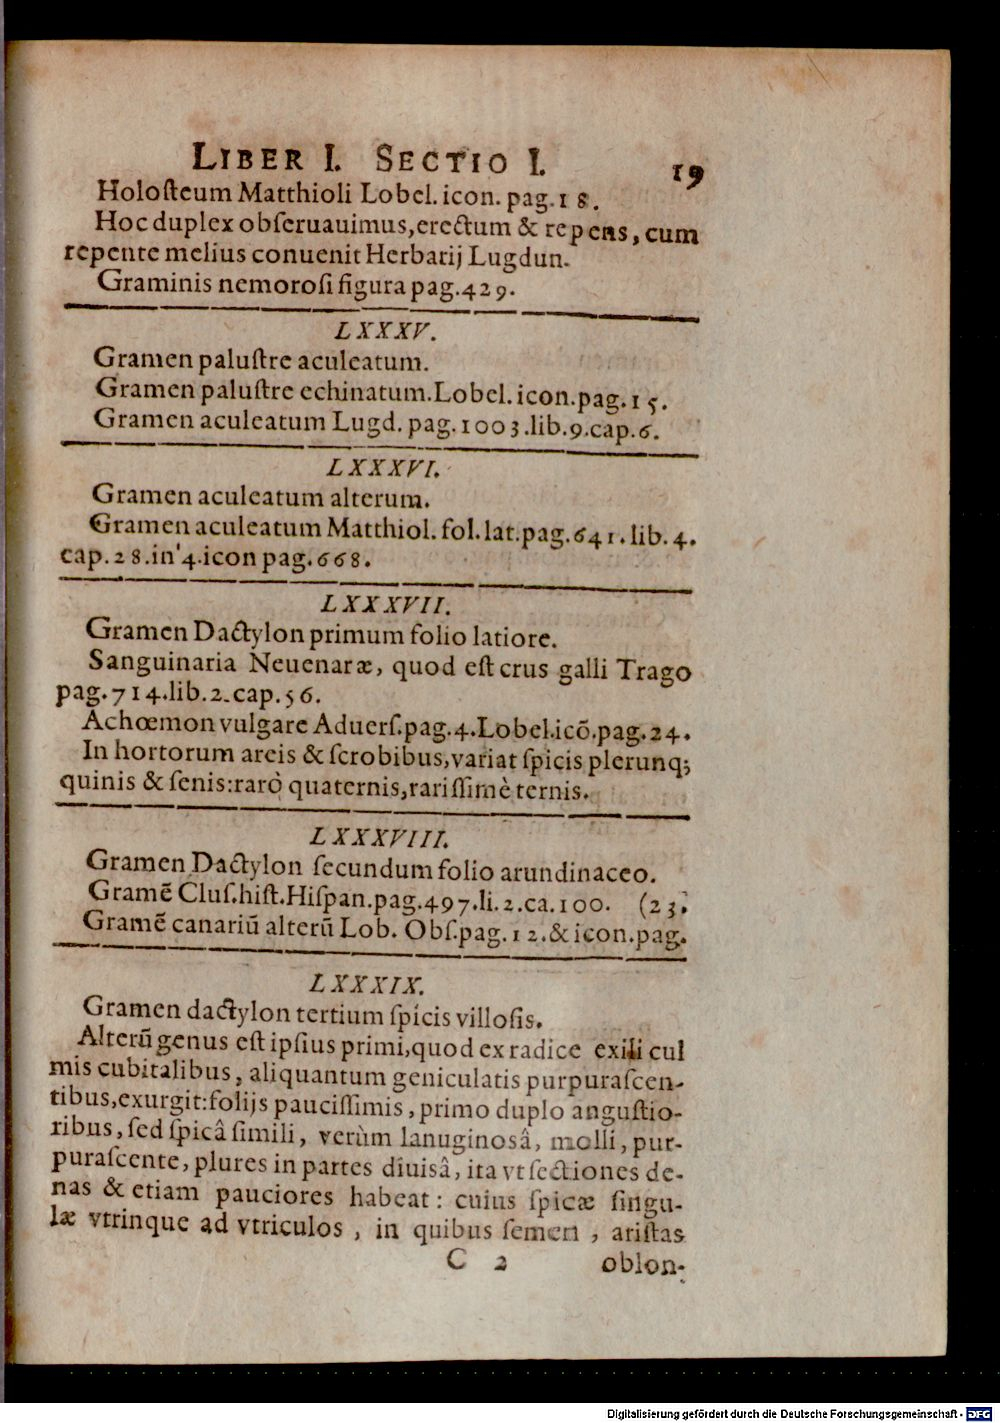 LIBER I. SECTIO I. 19
Holosteum Matthioli Lobel. icon. pag. 18.
Hoc duplex obseruauimus, erectum & repens, cum
repente melius conuenit Herbarij Lugdun.
Graminis nemorosi figura pag. 429.
LXXXV.
Gramen palustre aculeatum.
Gramen palustre echinatum. Lobel. icon. pag. 15.
Gramen aculeatum Lugd. pag. 1003. lib. 9. cap. 6.
LXXXVI.
Gramen aculeatum alterum.
Gramen aculeatum Matthiol. fol. lat. pag. 641. lib. 4.
cap. 28. in 4. icon pag. 668.
LXXXVII.
Gramen Dactylon primum folio latiore.
Sanguinaria Neuenaræ, quod est crus galli Trago
pag. 714. lib. 2. cap. 56.
Achœmon vulgare Aduers. pag. 4. Lobel. icō. pag. 24.
In hortorum areis & scrobibus, variat spicis plerunq;
quinis & senis: rarò quaternis, rarissimè ternis.
LXXXVIII.
Gramen Dactylon secundum folio arundinaceo.
Gramē Clus. hist. Hispan. pag. 497. li. 2. ca. 100. (23.
Gramē canariū alterū Lob. Obs. pag. 12. & icon. pag.
LXXXIX.
Gramen dactylon tertium spicis villosis.
Alterū genus est ipsius primi, quod ex radice exili cul
mis cubitalibus, aliquantum geniculatis purpurascen-
tibus, exurgit: folijs paucissimis, primo duplo angustio-
ribus, sed spicâ simili, verùm lanuginosâ, molli, pur-
purascente, plures in partes diuisâ, ita vt sectiones de-
nas & etiam pauciores habeat: cuius spicæ singu-
læ vtrinque ad vtriculos, in quibus semen, aristas
C 2 oblon-
Digitalisierung gefördert durch die Deutsche Forschungsgemeinschaft - DFG